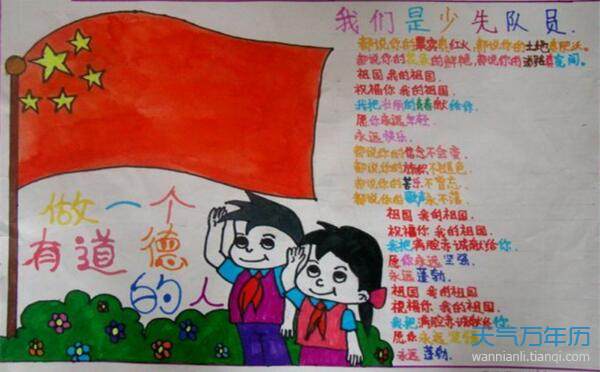 我们是少先队员.
都说你的果实真红火,都说你的土地真肥沃.
都说你的 的鲜艳,都说你的道路真宽阔.
祖国 我的祖国.
祝福你 我的祖国.
我把 的青春献给你.
愿你永远年轻.
永远快乐.
都说你的信念不会变.
都说你的旗帜不褪色.
都说你的苦乐不曾忘.
都说你的歌声永不落.
祖国 我的祖国.
祝福你 我的祖国.
我把满腔赤诚献给你.
愿你永远坚强.
永远蓬勃.
祖国 我的祖国.
祝福你 我的祖国.
我把满腔赤诚献给你.
愿你永远坚强
永远蓬勃.
做一个
有道德
的人
天气万年历
wannianli.tianqi.com